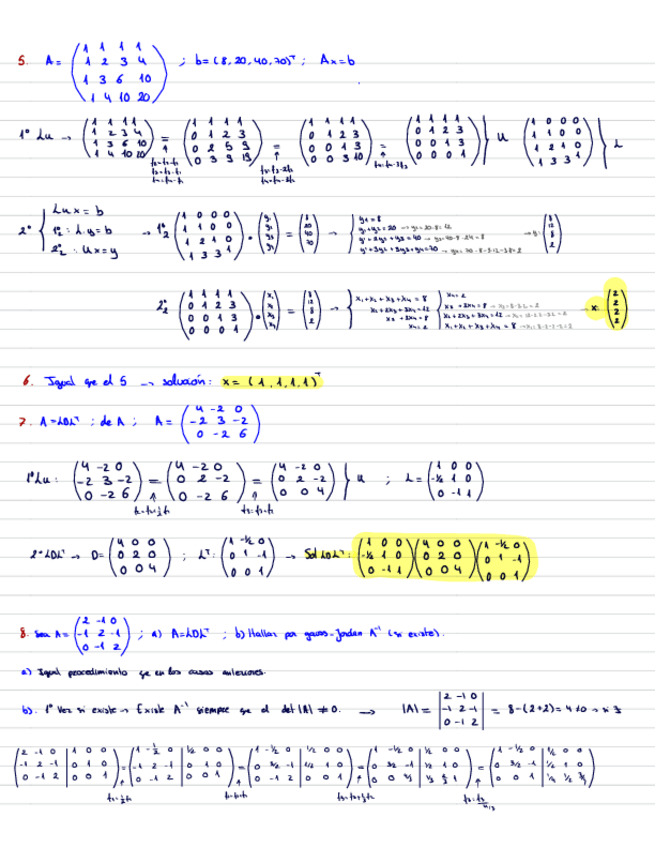 5. A= (1 1 1 1 / 1 2 3 4 / 1 3 6 10 / 1 4 10 20) ; b=(8,20,40,70)ᵀ ; Ax=b
1º Lu → (1 1 1 1 / 1 2 3 4 / 1 3 6 10 / 1 4 10 20) = (1 1 1 1 / 0 1 2 3 / 0 2 5 9 / 0 3 9 19) = (1 1 1 1 / 0 1 2 3 / 0 0 1 3 / 0 0 3 10) = (1 1 1 1 / 0 1 2 3 / 0 0 1 3 / 0 0 0 1) } U (1 0 0 0 / 1 1 0 0 / 1 2 1 0 / 1 3 3 1) } L
2º { Lux=b / 1º2 : L·y=b / 2º2 : Ux=y → 1º2 (1 0 0 0 / 1 1 0 0 / 1 2 1 0 / 1 3 3 1) · (y₁ y₂ y₃ y₄) = (8 20 40 70) → { y₁=8 / y₁+y₂=20 → y₂=20-8=12 / y₁+2y₂+y₃=40 → y₃=40-8-24=8 / y₁+3y₂+3y₃+y₄=70 → y: (8 12 8 2)
2º2 (1 1 1 1 / 0 1 2 3 / 0 0 1 3 / 0 0 0 1) · (x₁ x₂ x₃ x₄) = (8 12 8 2) → { x₁+x₂+x₃+x₄=8 / x₂+2x₃+3x₄=12 / x₃+3x₄=8 / x₄=2 { x₄=2 / x₃+3x₄=8 / x₂+2x₃+3x₄=12 / x₁+x₂+x₃+x₄=8 → x: (2 2 2 2)
6. Igual que el 5 → solución: x=(1,1,1,1)ᵀ
7. A=LDLᵀ ; de A ; A= (4 -2 0 / -2 3 -2 / 0 -2 6)
1º Lu: (4 -2 0 / -2 3 -2 / 0 -2 6) = (4 -2 0 / 0 2 -2 / 0 -2 6) = (4 -2 0 / 0 2 -2 / 0 0 4) } U ; L= (1 0 0 / -½ 1 0 / 0 -1 1)
2º LDLᵀ → D= (4 0 0 / 0 2 0 / 0 0 4) ; Lᵀ: (1 -½ 0 / 0 1 -1 / 0 0 1) → Sol LDLᵀ: (1 0 0 / -½ 1 0 / 0 -1 1)(4 0 0 / 0 2 0 / 0 0 4)(1 -½ 0 / 0 1 -1 / 0 0 1)
8. Sea A= (2 -1 0 / -1 2 -1 / 0 -1 2) ; a) A=LDLᵀ ; b) Hallar por gauss-Jordan A⁻¹ (si existe).
a) Igual procedimiento que en los casos anteriores.
b). 1º Ver si existe → Existe A⁻¹ siempre que el det|A| ≠ 0. → |A| = |2 -1 0 / -1 2 -1 / 0 -1 2| = 8-(2+2)=4≠0 → si ∃
(2 -1 0 | 1 0 0 / -1 2 -1 | 0 1 0 / 0 -1 2 | 0 0 1) = (1 -½ 0 | ½ 0 0 / -1 2 -1 | 0 1 0 / 0 -1 2 | 0 0 1) = (1 -½ 0 | ½ 0 0 / 0 3/2 -1 | 1/2 1 0 / 0 -1 2 | 0 0 1) = (1 -½ 0 | ½ 0 0 / 0 3/2 -1 | ½ 1 0 / 0 0 4/3 | ⅓ ⅔ 1) =